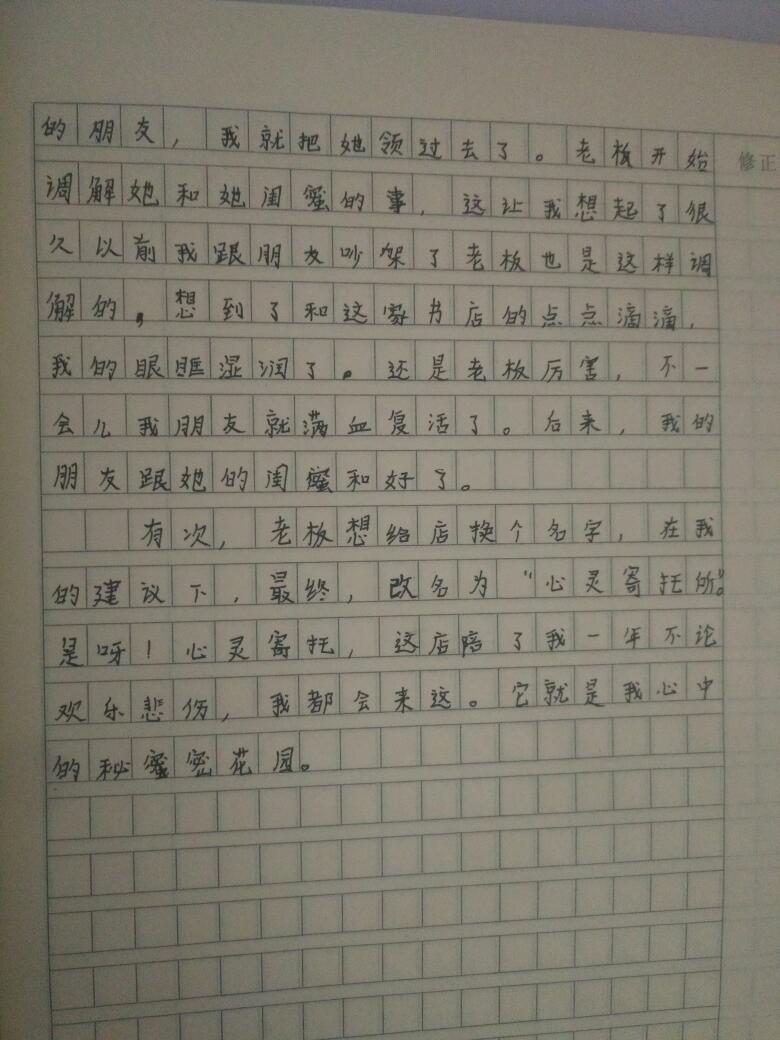 的朋友，我就把她领过去了。老板开始
修正
调解她和她闺蜜的事，这让我想起了很
久以前我跟朋友吵架了老板也是这样调
解的，想到了和这家书店的点点滴滴，
我的眼眶湿润了。还是老板厉害，不一
会儿我朋友就满血复活了。后来，我的
朋友跟她的闺蜜和好了。
有次，老板想给店换个名字，在我
的建议下，最终，改名为“心灵寄托所”。
是呀！心灵寄托，这店陪了我一年不论
欢乐悲伤，我都会来这。它就是我心中
的秘蜜密花园。